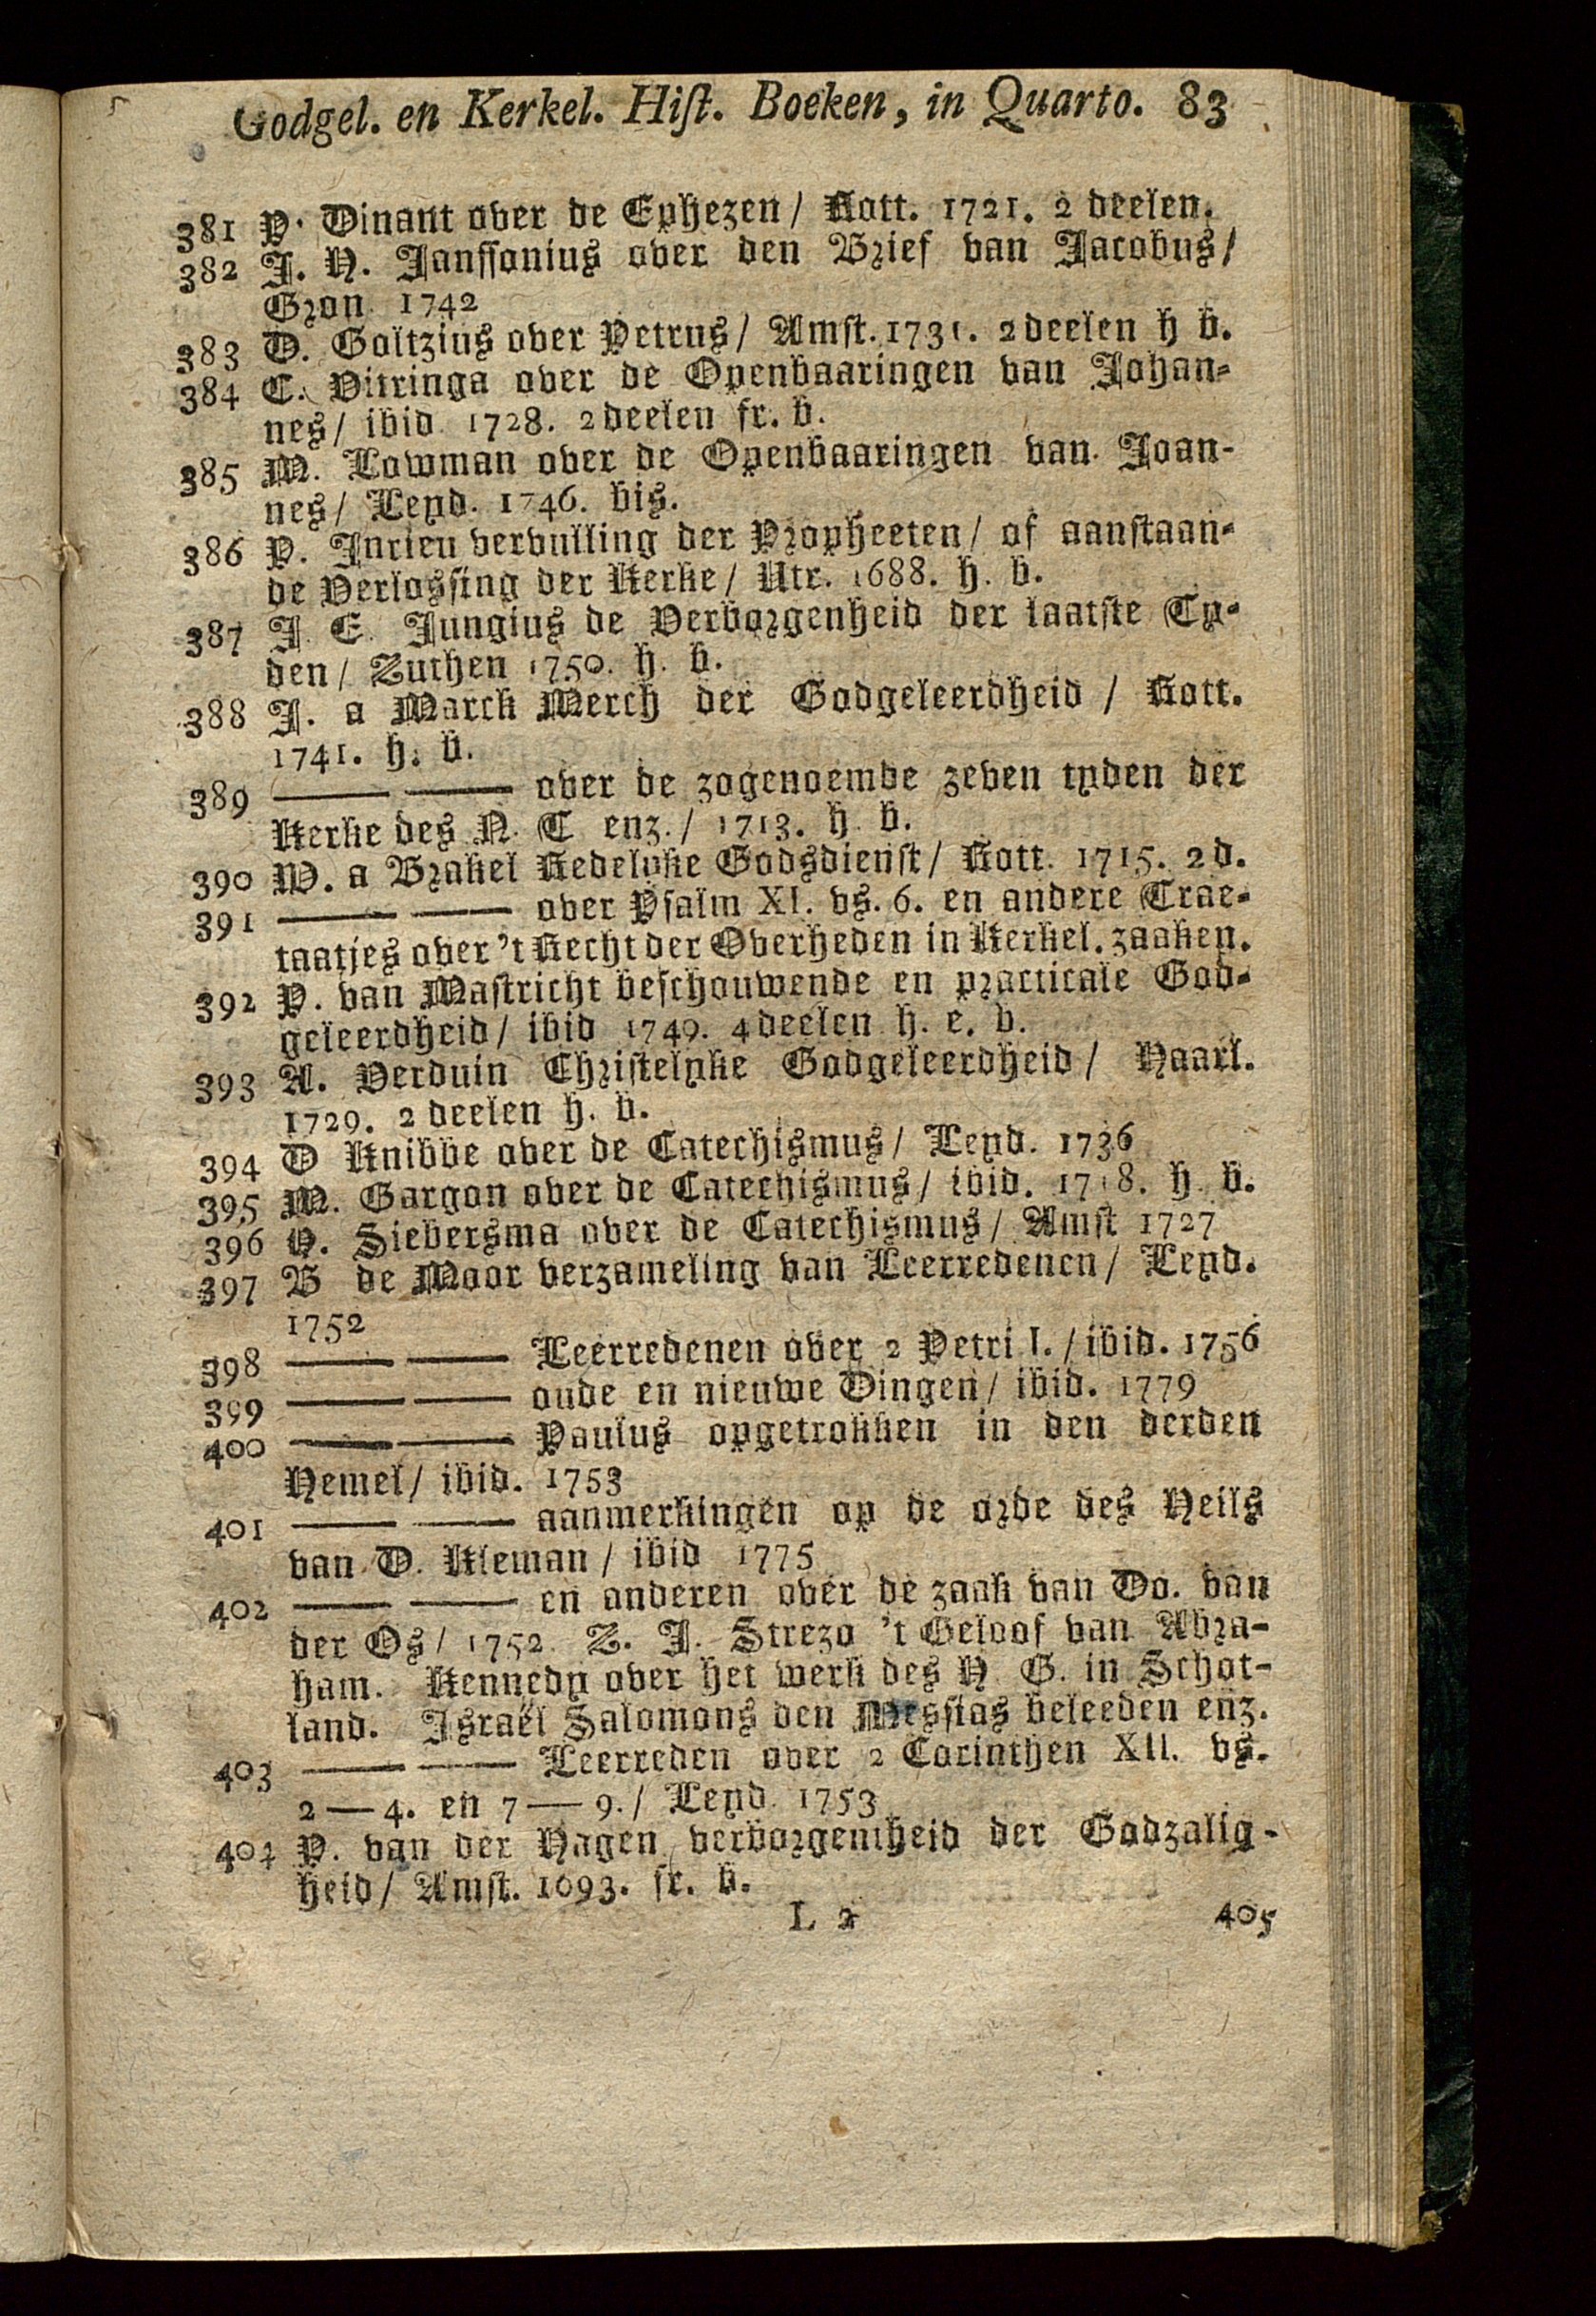 Godgel. en Kerkel. Hist. Boeken, in Quarto. 83
381 P. Dinant over de Ephezen / Rott. 1721. 2 deelen.
382 J. H. Janssonius over den Brief van Jacobus /
Gron 1742
383 D. Goltzius over Petrus / Amst. 1731. 2 deelen h b.
384 C. Vitringa over de Openbaaringen van Johan-
nes / ibid 1728. 2 deelen fr. b.
385 M. Lowman over de Openbaaringen van Joan-
nes / Leyd. 1746. bis.
386 P. Jurieu vervulling der Propheeten / of aanstaan-
de Verlossing der Kerke / Utr. 1688. h. b.
387 J E. Jungius de Verborgenheid der laatste Ty-
den / Zuthen 1750. h. b.
388 J. a Marck Merch der Godgeleerdheid / Rott.
1741. h. b.
389 —— —— over de zogenoemde zeven tyden der
Kerke des N. T enz. / 1713. h b.
390 W. a Brakel Redelyke Godsdienst / Rott. 1715. 2 d.
391 —— —— over Psalm XI. vs. 6. en andere Trae-
taatjes over 't Recht der Overheden in Kerkel. zaaken.
392 P. van Mastricht beschouwende en practicale God-
geleerdheid / ibid 1749. 4 deelen h. e. b.
393 A. Verduin Christelyke Godgeleerdheid / Haarl.
1729. 2 deelen h. b.
394 D Knibbe over de Catechismus / Leyd. 1736
395 M. Gargon over de Catechismus / ibid. 1718. h b.
396 H. Siebersma over de Catechismus / Amst 1727
397 B de Moor verzameling van Leerredenen / Leyd.
1752
398 —— —— Leerredenen over 2 Petri I. / ibid. 1756
399 —— —— oude en nieuwe Dingen / ibid. 1779
400 —— —— Paulus opgetrokken in den derden
Hemel / ibid. 1753
401 —— —— aanmerkingen op de orde des Heils
van D. Kleman / ibid 1775
402 —— —— en anderen over de zaak van Do. van
der Os / 1752 Z. J. Strezo 't Geloof van Abra-
ham. Kennedy over het werk des H G. in Schot-
land. Israël Salomons den Messias beleeden enz.
403 —— —— Leerreden over 2 Corinthen XII. vs.
2—4. en 7—9. / Leyd 1753
404 P. van der Hagen verborgentheid der Godzalig-
heid / Amst. 1693. fr. b.
L 2 405